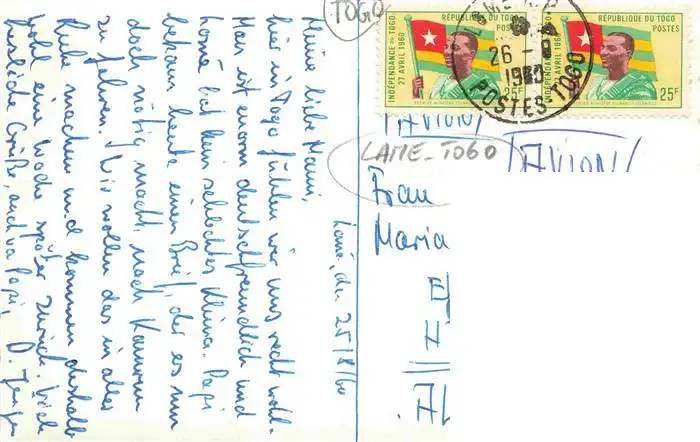 TOGO
RÉPUBLIQUE DU TOGO
POSTES
INDÉPENDANCE DU TOGO
27 AVRIL 1960
25F
RÉPUBLIQUE DU TOGO
POSTES
INDÉPENDANCE DU TOGO
27 AVRIL 1960
25F
26
1960
POSTES TOGO
AVION
LAME-TOGO
AVION
Frau
Maria
E
H
Al
Lomé, den 25/8/60
Meine liebe Mami,
hier in Togo fühlen wir uns recht wohl.
Man ist enorm deutschfreundlich und
Lomé hat kein schlechtes Klima. Papi
bekam heute einen Brief, der es nun
doch nötig macht, nach Kamerun
zu fahren. Wir wollen das in aller
Ruhe machen und kommen deshalb
wohl eine Woche später zurück. Viele
herzliche Grüße, auch von Papi,